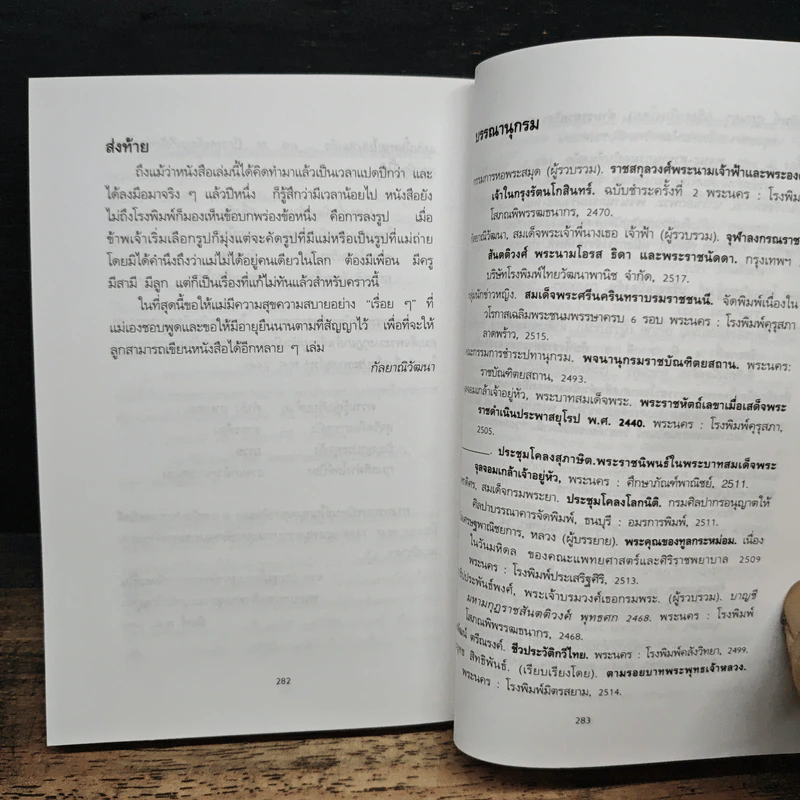 ส่งท้าย
ถึงแม้ว่าหนังสือเล่มนี้ได้คิดทำมาแล้วเป็นเวลาแปดปีกว่า และ
ได้ลงมือมาจริง ๆ แล้วปีหนึ่ง ก็รู้สึกว่ามีเวลาน้อยไป หนังสือยัง
ไม่ถึงโรงพิมพ์ก็มองเห็นข้อบกพร่องข้อหนึ่ง คือการลงรูป เมื่อ
ข้าพเจ้าเริ่มเลือกรูปก็มุ่งแต่จะคัดรูปที่มีแม่หรือเป็นรูปที่แม่ถ่าย
โดยมิได้คำนึงถึงว่าแม่ไม่ได้อยู่คนเดียวในโลก ต้องมีเพื่อน มีครู
มีสามี มีลูก แต่ก็เป็นเรื่องที่แก้ไม่ทันแล้วสำหรับคราวนี้
ในที่สุดนี้ขอให้แม่มีความสุขความสบายอย่าง "เรื่อย ๆ" ที่
แม่เองชอบพูดและขอให้มีอายุยืนนานตามที่สัญญาไว้ เพื่อที่จะให้
ลูกสามารถเขียนหนังสือได้อีกหลาย ๆ เล่ม
กัลยาณิวัฒนา
282
บรรณานุกรม
กรรมการหอพระสมุด (ผู้รวบรวม). ราชสกุลวงศ์พระนามเจ้าฟ้าและพระองค์
เจ้าในกรุงรัตนโกสินทร์. ฉบับชำระครั้งที่ 2 พระนคร : โรงพิมพ์
โสภณพิพรรฒธนากร, 2470.
กัลยาณิวัฒนา, สมเด็จพระเจ้าพี่นางเธอ เจ้าฟ้า (ผู้รวบรวม). จุฬาลงกรณราช
สันตติวงศ์ พระนามโอรส ธิดา และพระราชนัดดา. กรุงเทพฯ
บริษัทโรงพิมพ์ไทยวัฒนาพานิช จำกัด, 2517.
นักข่าวหญิง. สมเด็จพระศรีนครินทราบรมราชชนนี. จัดพิมพ์เนื่องใน
วโรกาสเฉลิมพระชนมพรรษาครบ 6 รอบ พระนคร : โรงพิมพ์คุรุสภา
ลาดพร้าว, 2515.
คณะกรรมการชำระปทานุกรม. พจนานุกรมราชบัณฑิตยสถาน. พระนคร:
ราชบัณฑิตยสถาน, 2493.
จุลจอมเกล้าเจ้าอยู่หัว, พระบาทสมเด็จพระ. พระราชหัตถ์เลขาเมื่อเสด็จพระ
ราชดำเนินประพาสยุโรป พ.ศ. 2440. พระนคร : โรงพิมพ์คุรุสภา,
2505.
______. ประชุมโคลงสุภาษิต.พระราชนิพนธ์ในพระบาทสมเด็จพระ
จุลจอมเกล้าเจ้าอยู่หัว, พระนคร : ศึกษาภัณฑ์พาณิชย์, 2511.
สมเด็จกรมพระยา. ประชุมโคลงโลกนิติ. กรมศิลปากรอนุญาตให้
ศิลปาบรรณาคารจัดพิมพ์, ธนบุรี : อมรการพิมพ์, 2511.
หลวง (ผู้บรรยาย). พระคุณของทูลกระหม่อม. เนื่อง
ในวันมหิดล ของคณะแพทยศาสตร์และศิริราชพยาบาล 2509
พระนคร : โรงพิมพ์ประเสริฐศิริ, 2513.
พระเจ้าบรมวงศ์เธอกรมพระ. (ผู้รวบรวม). บาญชี
มหามกุฎราชสันตติวงศ์ พุทธศก 2468. พระนคร : โรงพิมพ์
โสภณพิพรรฒธนากร, 2468.
ตรีณรงค์. ชีวประวัติกวีไทย. พระนคร : โรงพิมพ์คลังวิทยา, 2499.
สิทธิพันธ์. (เรียบเรียงโดย). ตามรอยบาทพระพุทธเจ้าหลวง.
พระนคร : โรงพิมพ์มิตรสยาม, 2514.
283